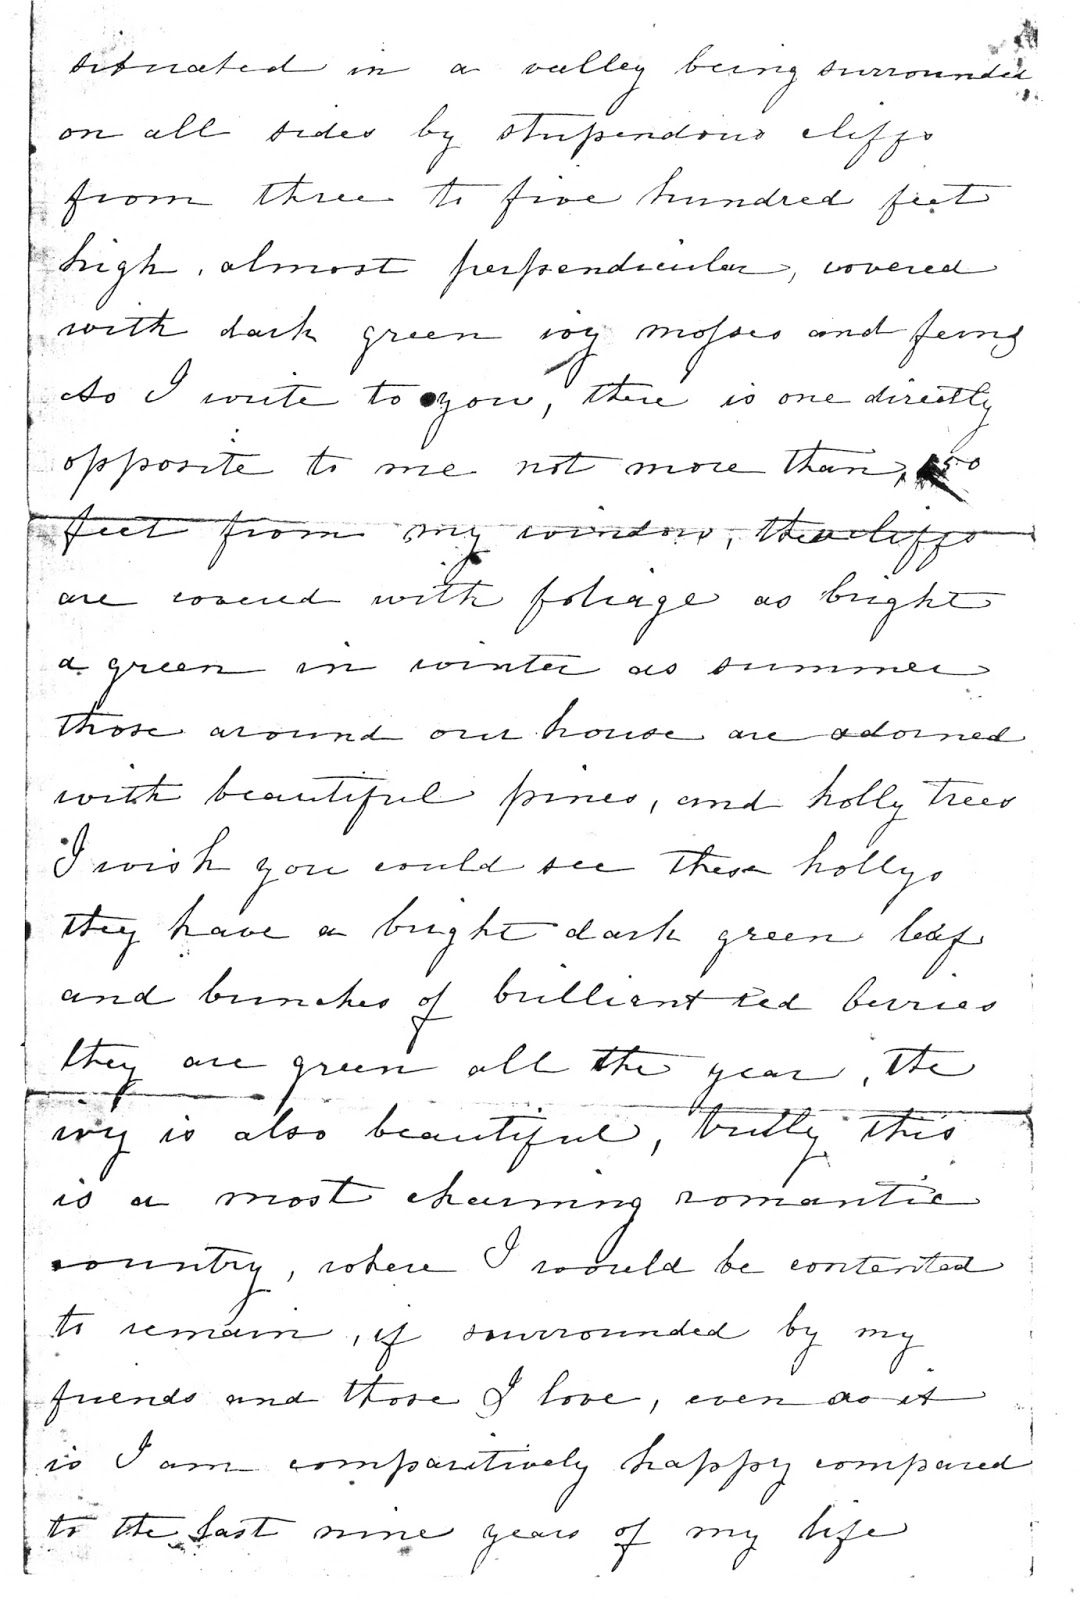 situated in a valley being surrounded
on all sides by stupendous cliffs
from three to five hundred feet
high, almost perpendicular, covered
with dark green ivy mosses and ferns
As I write to you, there is one directly
opposite to me not more than, 50
feet from my window, the cliffs
are covered with foliage as bright
a green in winter as summer
those around our house are adorned
with beautiful pines, and holly trees
I wish you could see these hollys
they have a bright dark green leaf
and bunches of brilliant red berries
they are green all the year, the
ivy is also beautiful, trully this
is a most charming romantic
country, where I would be contented
to remain, if surrounded by my
friends and those I love, even as it
is I am comparitively happy compared
to the last nine years of my life